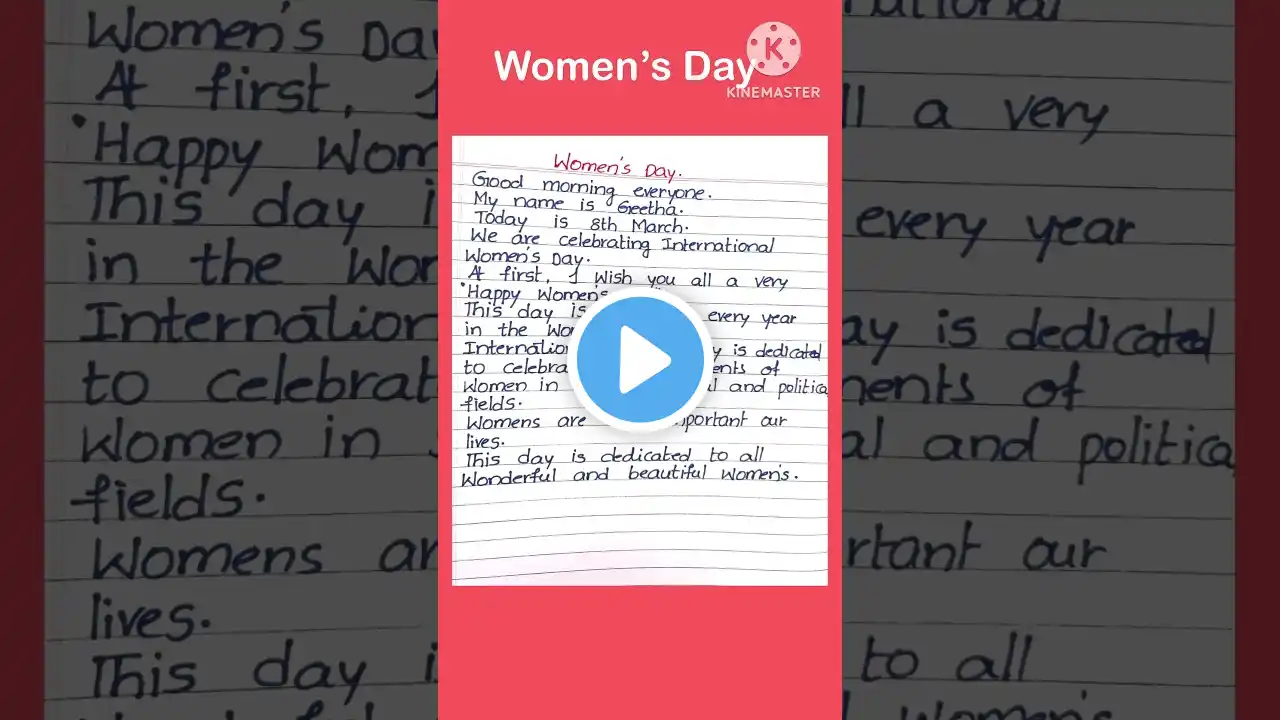 Women's Day
KINEMASTER
Women's Day.
Good morning everyone.
My name is Geetha.
Today is 8th March.
We are celebrating International
Women's Day.
At first, I wish you all a very
'Happy Women's
This day is every year
in the
is dedicated
to of
Women in and politica
fields.
Womens are our
lives.
This day is dedicated to all
Wonderful and beautiful Women's.